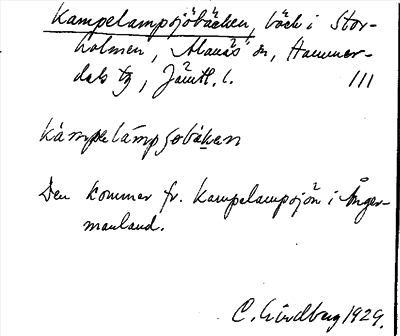 Kampelampsjöbäcken, bäck i Stor-
holmen, Alanäs sn, Hammer-
dals tg, Jämtl. l. III
kámpelàmpsobäkan
Den kommer fr. Kampelampsjön i Ånger-
manland.
C. Lindberg 1929.